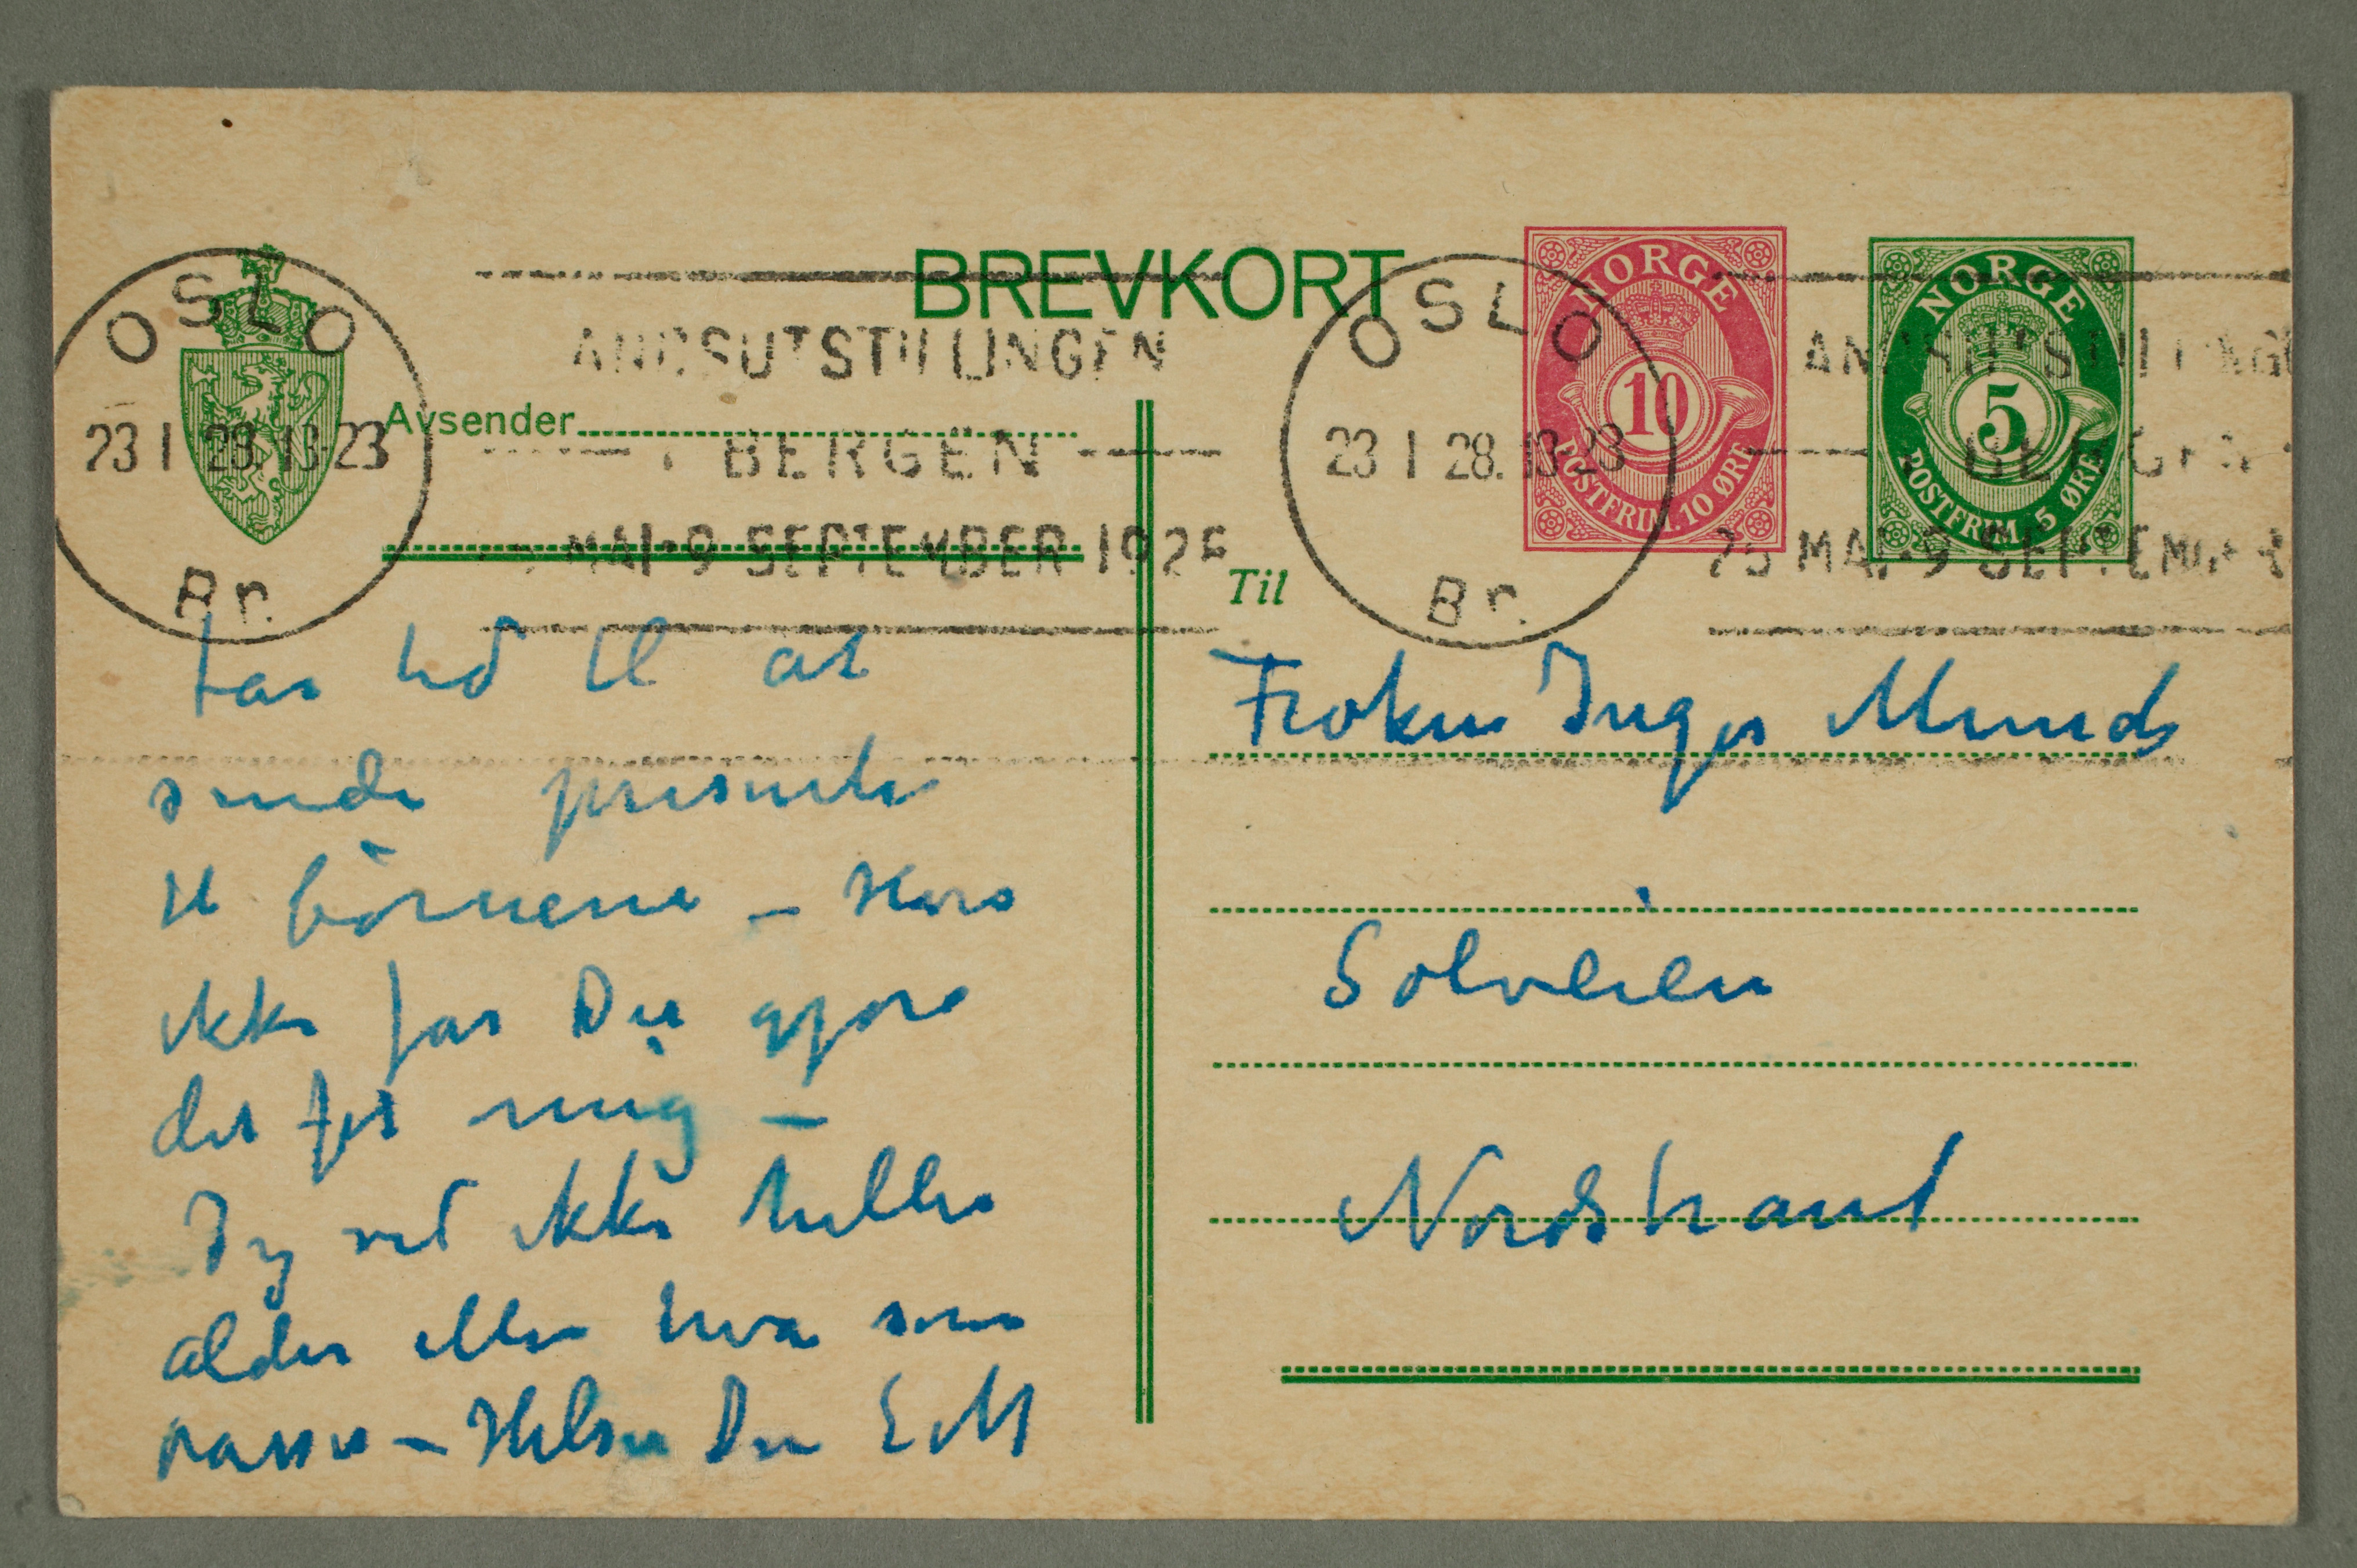 BREVKORT
OSLO
23 I 28. 13-23
Br.
ANDSUTSTILLINGEN
BERGEN
MAI-9 SEPTEMBER 192
Avsender
OSLO
23 I 28. 13-23
Br.
NORGE
10
POSTFRIM. 10 ØRE
NORGE
5
POSTFRIM. 5 ØRE
BERGEN
25 MAI-9 SEPTEMBER
Til
Frøken Inger Munch
Solveien
Nordstrand
tar tid til at
sende presenter
til börnene – Hvis
ikke far Du gjøre
det for mig –
Jeg ved ikke heller
alder eller hva som
passer – Hilsen Din EM